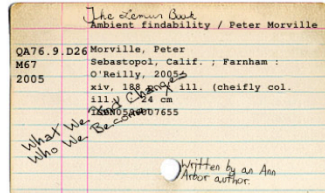 The Lemur Book
Ambient findability / Peter Morville
QA76.9.D26 Morville, Peter
M67 Sebastopol, Calif. ; Farnham :
2005 O'Reilly, 2005.
xiv, 188 p. : ill. (cheifly col.
ill.) ; 24 cm
ISBN0596007655
What We Find Changes
Who We Become
Written by an Ann
Arbor author.